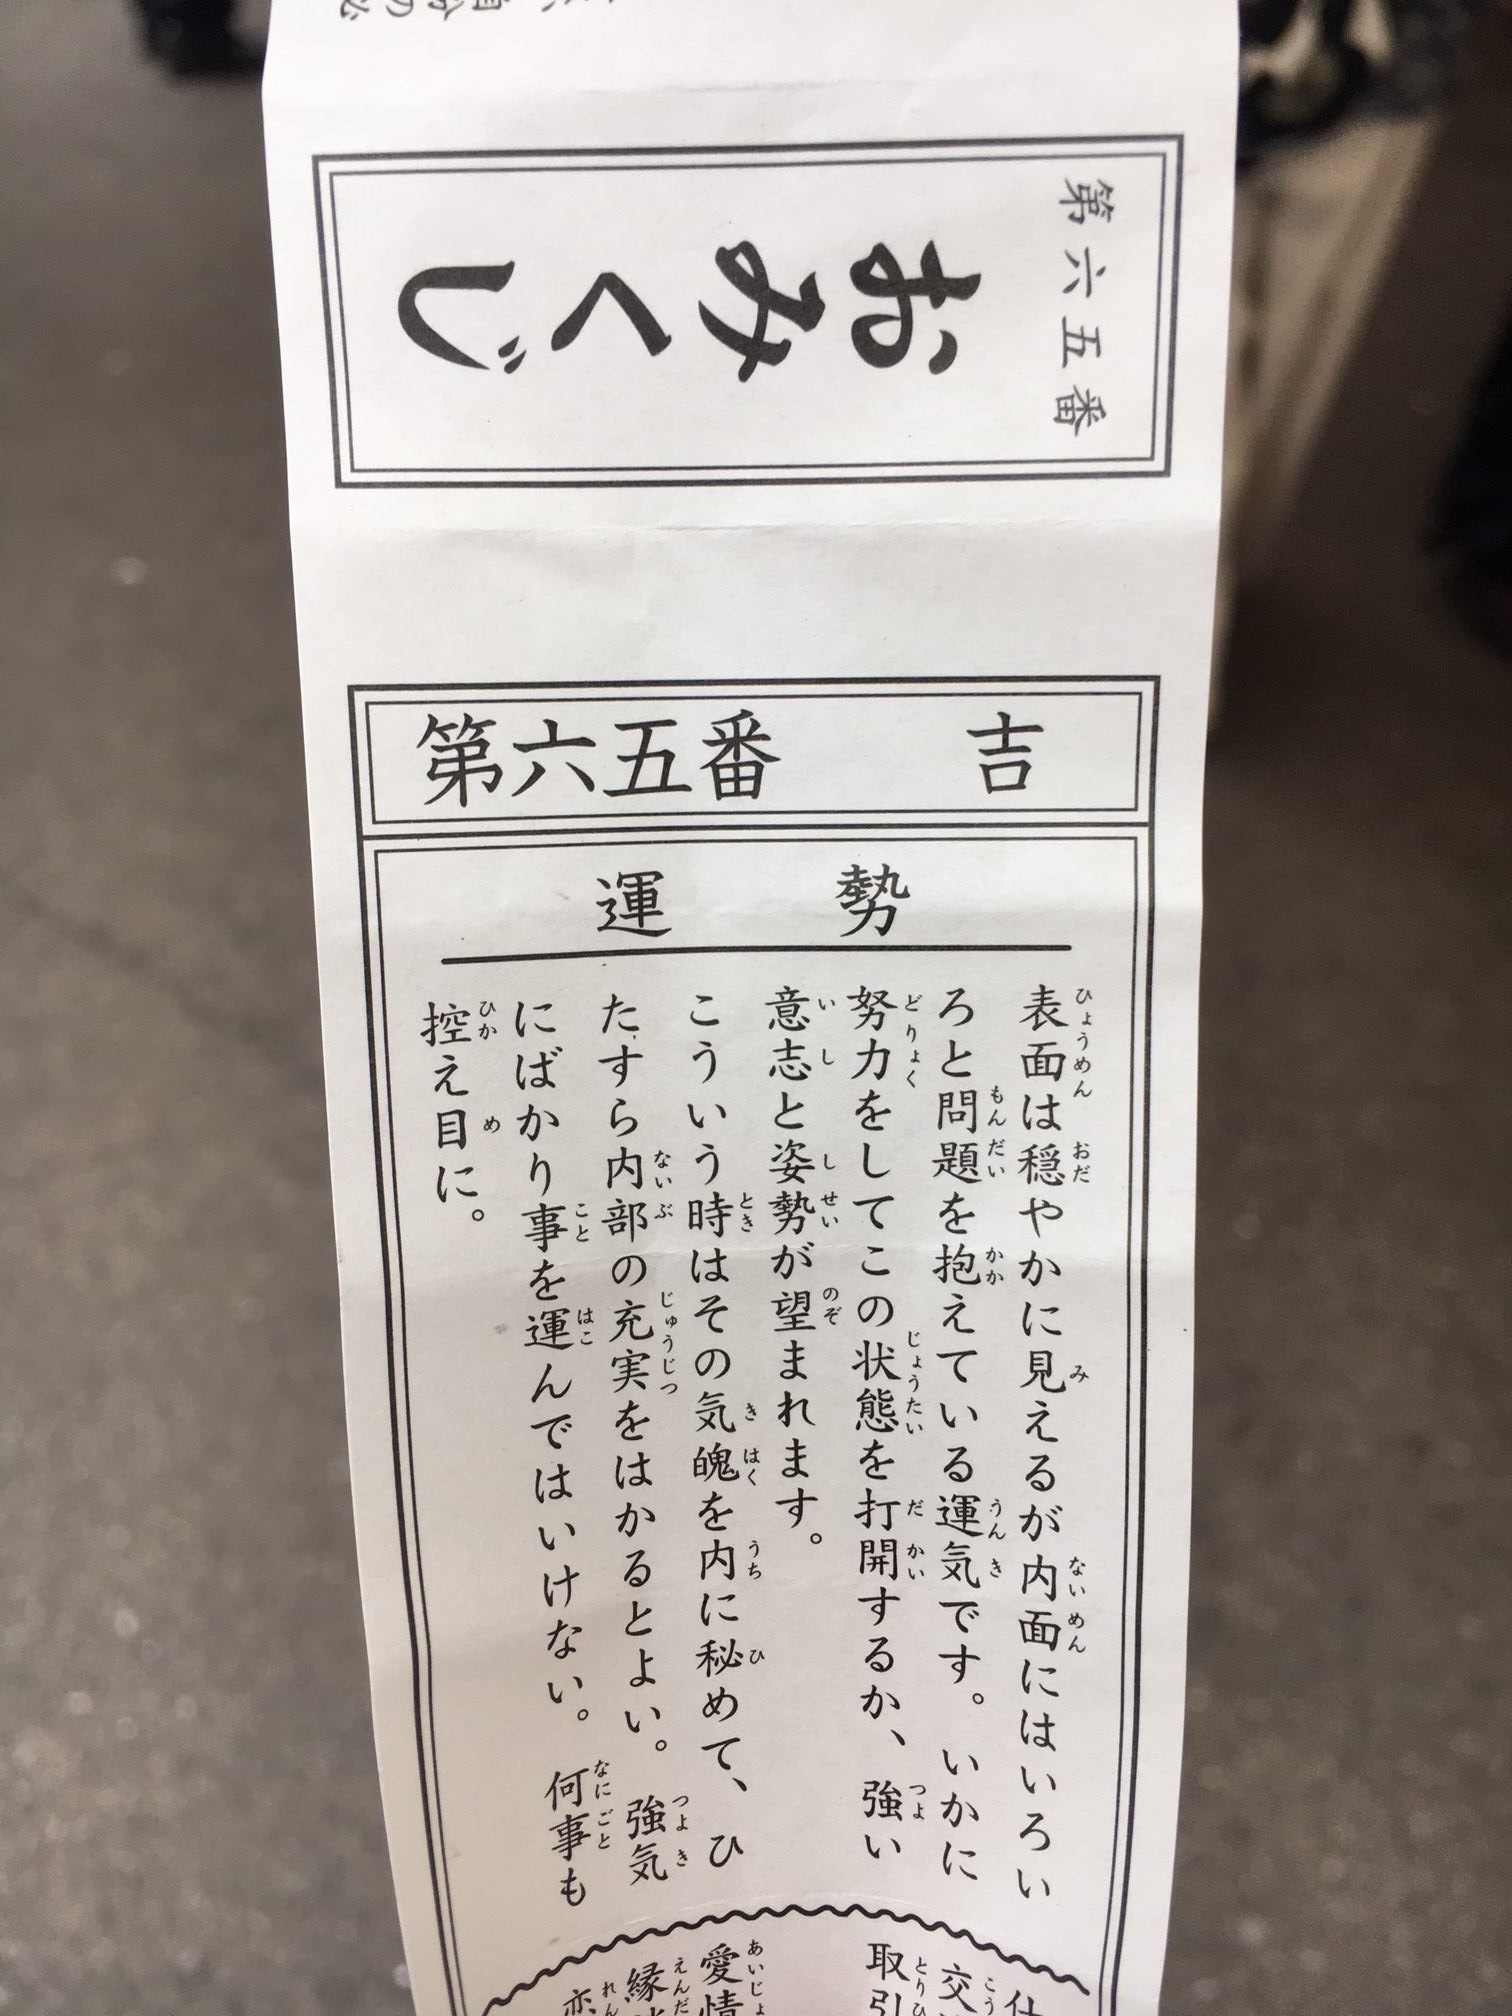 第六五番
おみくじ
第六五番 吉
運勢
表面は穏やかに見えるが内面にはいろい
ろと問題を抱えている運気です。いかに
努力をしてこの状態を打開するか、強い
意志と姿勢が望まれます。
こういう時はその気魄を内に秘めて、ひ
たすら内部の充実をはかるとよい。強気
にばかり事を運んではいけない。何事も
控え目に。
交
取引
愛情
縁